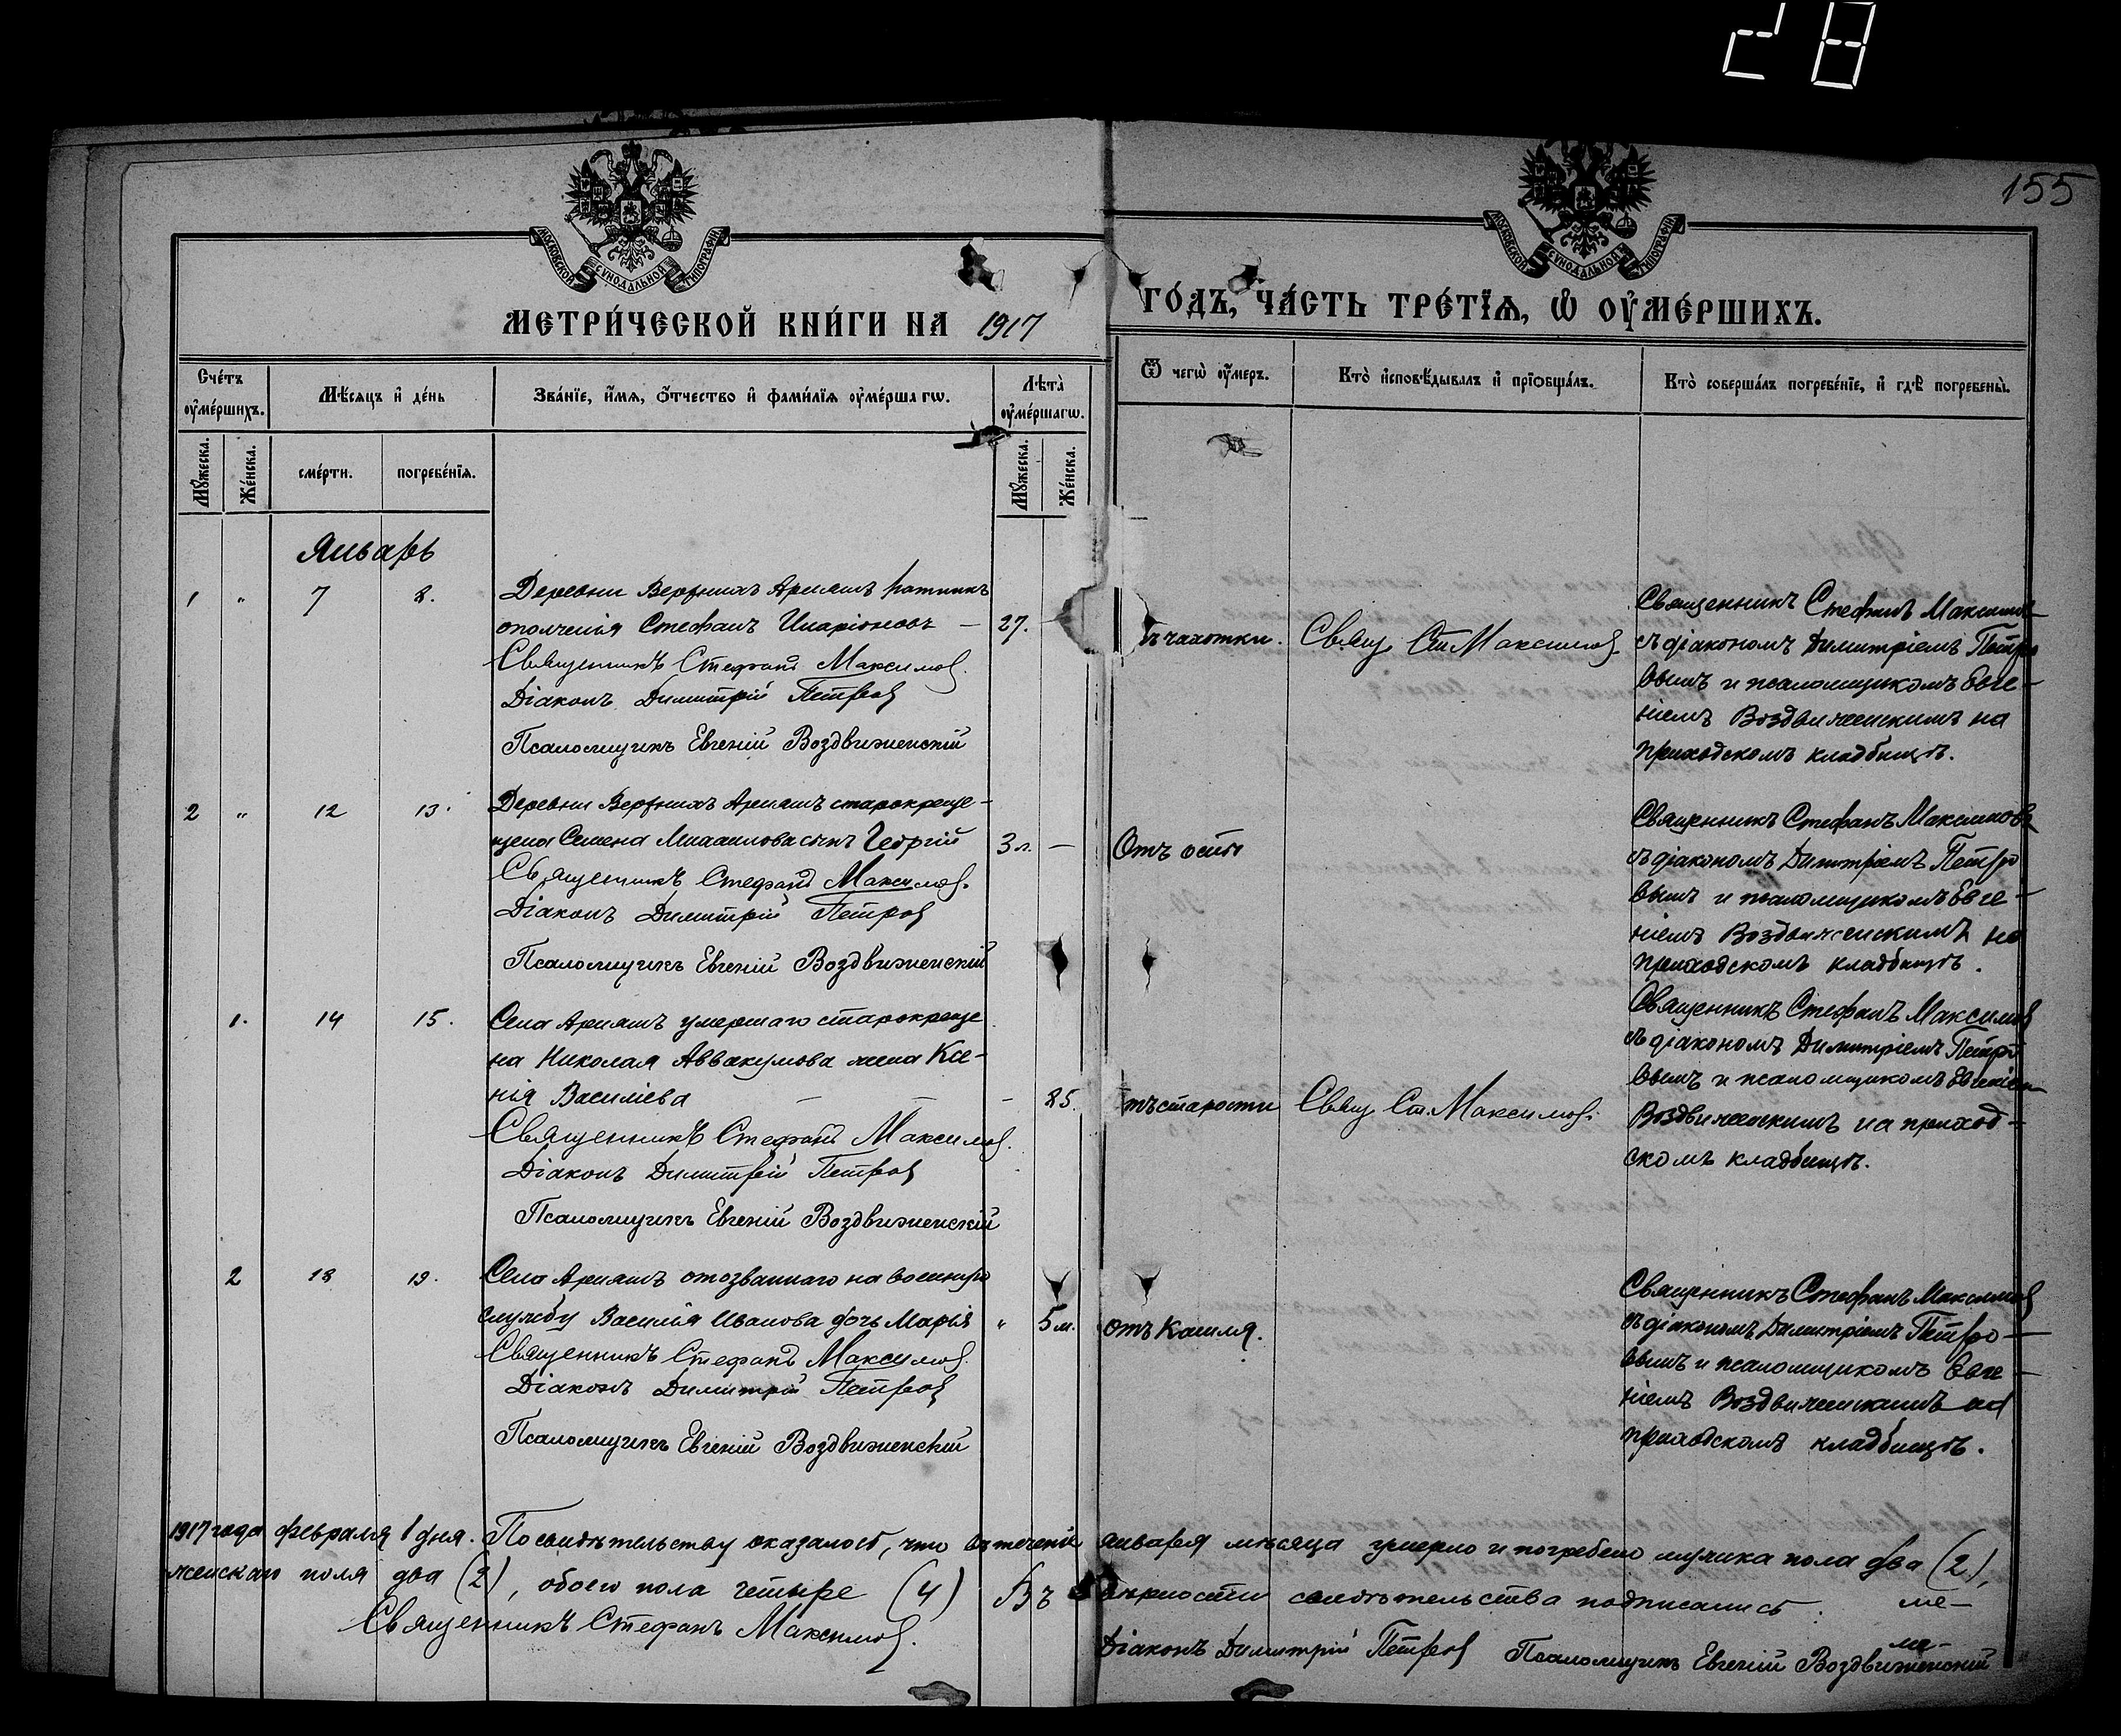 28
155
МОСКОВСКОЙ СѴНОДАЛЬНОЙ ТИПОГРАФІИ
МОСКОВСКОЙ СѴНОДАЛЬНОЙ ТИПОГРАФІИ
МЕТРИ́ЧЕСКОЙ КНИ́ГИ НА 1917 ГО́ДЪ, ЧА́СТЬ ТРЕ́ТЇѦ, Ѡ҆ ОУ҆МЕ́РШИХЪ.
Сче́тъ оу҆ме́ршихъ.
Мѣ́сѧцъ и҆ де́нь
Зва́нїе, и҆́мѧ, ѻ҆́тчество и҆ фами́лїѧ оу҆ме́ршагѡ.
Лѣ́та оу҆ме́ршагѡ.
Ѿ чегѡ̀ оу҆́меръ.
Кто̀ и҆сповѣ́дывалъ и҆ прїѻбща́лъ.
Кто̀ соверша́лъ погребе́нїе, и҆ гдѣ̀ погребены̀.
Мꙋ́жеска.
Же́нска.
сме́рти.
погребе́нїѧ.
Мꙋ́жеска.
Же́нска.
Январь
1 " 7 8.
Деревни Верхнихъ Аріяшъ ратникъ
ополченія Стефанъ Иларіоновъ — 27.
Священникъ Стефанъ Максимов.
Діаконъ Димитрій Петров
Псаломщикъ Евгеній Воздвиженскій
ъ чахотки.
Свящ. Ст. Максимов.
Священникъ Стефанъ Максимовъ
съ діакономъ Димитріемъ Петро
вымъ и псаломщикомъ Евге-
ніемъ Воздвиженскимъ на
приходскомъ кладбищѣ.
2 " 12 13.
Деревни Верхнихъ Аріяшъ старокреще-
щена Семена Михаилова сынъ Георгій 3 л. —
Священникъ Стефанъ Максимов.
Діаконъ Димитрій Петров
Псаломщикъ Евгеній Воздвиженскій
Отъ оспы
Священникъ Стефанъ Максимовъ
съ діакономъ Димитріемъ Петро
вымъ и псаломщикомъ Евге-
ніемъ Воздвиженскимъ на
приходскомъ кладбищѣ.
1. 14 15.
Села Аріяшъ умершаго старокреще
на Николая Аввакумова жена Ксе-
нія Василіева — — — 85.
Священникъ Стефанъ Максимов.
Діаконъ Димитрій Петров
Псаломщикъ Евгеній Воздвиженскій
тъ старости
Свящ. Ст. Максимов.
Священникъ Стефанъ Максимов
съ діакономъ Димитріемъ Петро
вымъ и псаломщикомъ Евгеніем
Воздвиженскимъ на приход-
скомъ кладбищѣ.
2 18 19.
Села Аріяшъ отозваннаго на военную
службу Василія Иванова дочь Марія " 5 м.
Священникъ Стефанъ Максимов.
Діаконъ Димитрій Петров
Псаломщикъ Евгеній Воздвиженскій
отъ Кашля.
Священникъ Стефанъ Максимов
съ діакономъ Димитріемъ Петро-
вымъ и псаломщикомъ Евге-
ніемъ Воздвиженскимъ на
приходскомъ кладбищѣ.
1917 года февраля 1 дня. По свидѣтельству оказалось, что въ теченіе января мѣсяца умерло и погребено мужска пола два (2),
женскаго пола два (2), обоего пола четыре (4) Въ вѣрности свидѣтельства подписались:
Священникъ Стефанъ Максимов.
Діаконъ Димитрій Петров Псаломщикъ Евгеній Воздвиженскій